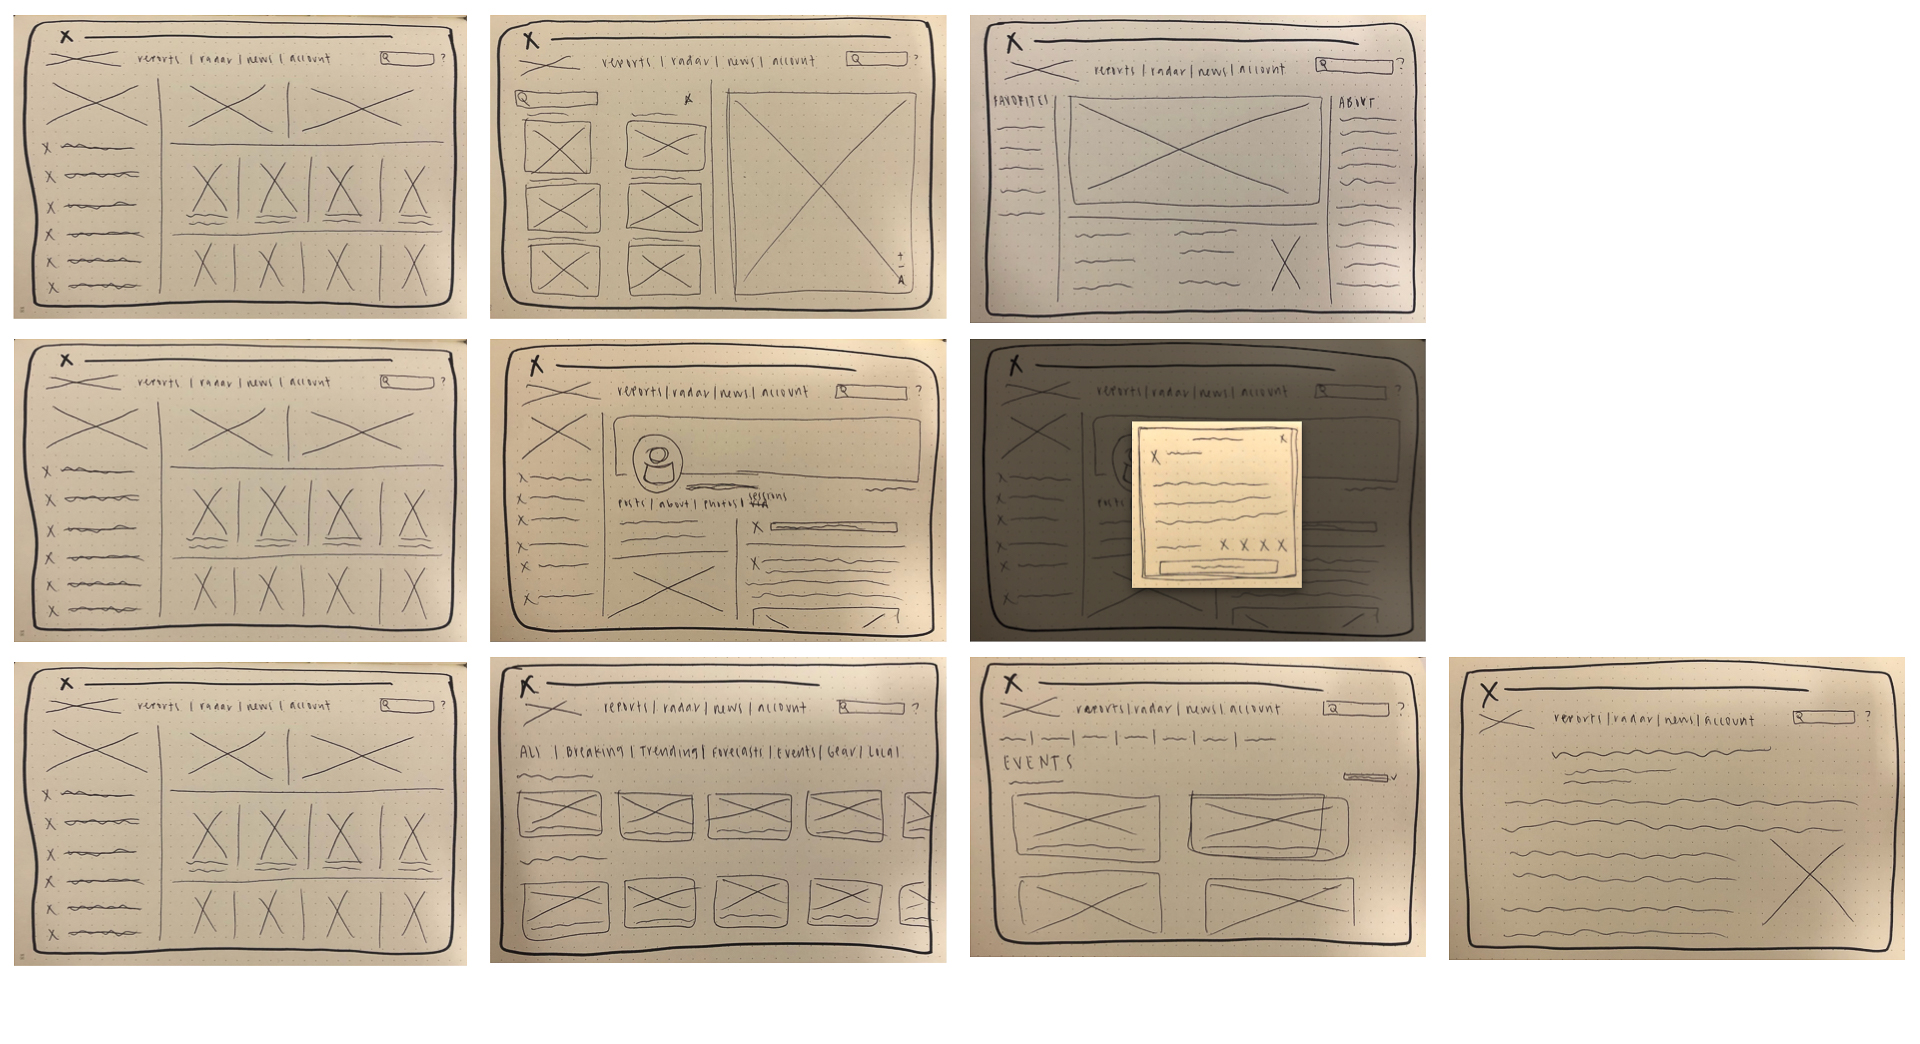 X
reports | radar | news | account ?
X
reports | radar | news | account ?
X
+
-
A
X
reports | radar | news | account ?
FAVORITES
ABOUT
X
reports | radar | news | account ?
X
reports | radar | news | account ?
posts | about | photos | sessions
X
reports | radar | news | account ?
posts
X
X
reports | radar | news | account ?
X
reports | radar | news | account ?
ALL | Breaking | Trending | Forecasts | Events | Gear | Local
X
reports | radar | news | account ?
EVENTS
X
reports | radar | news | account ?